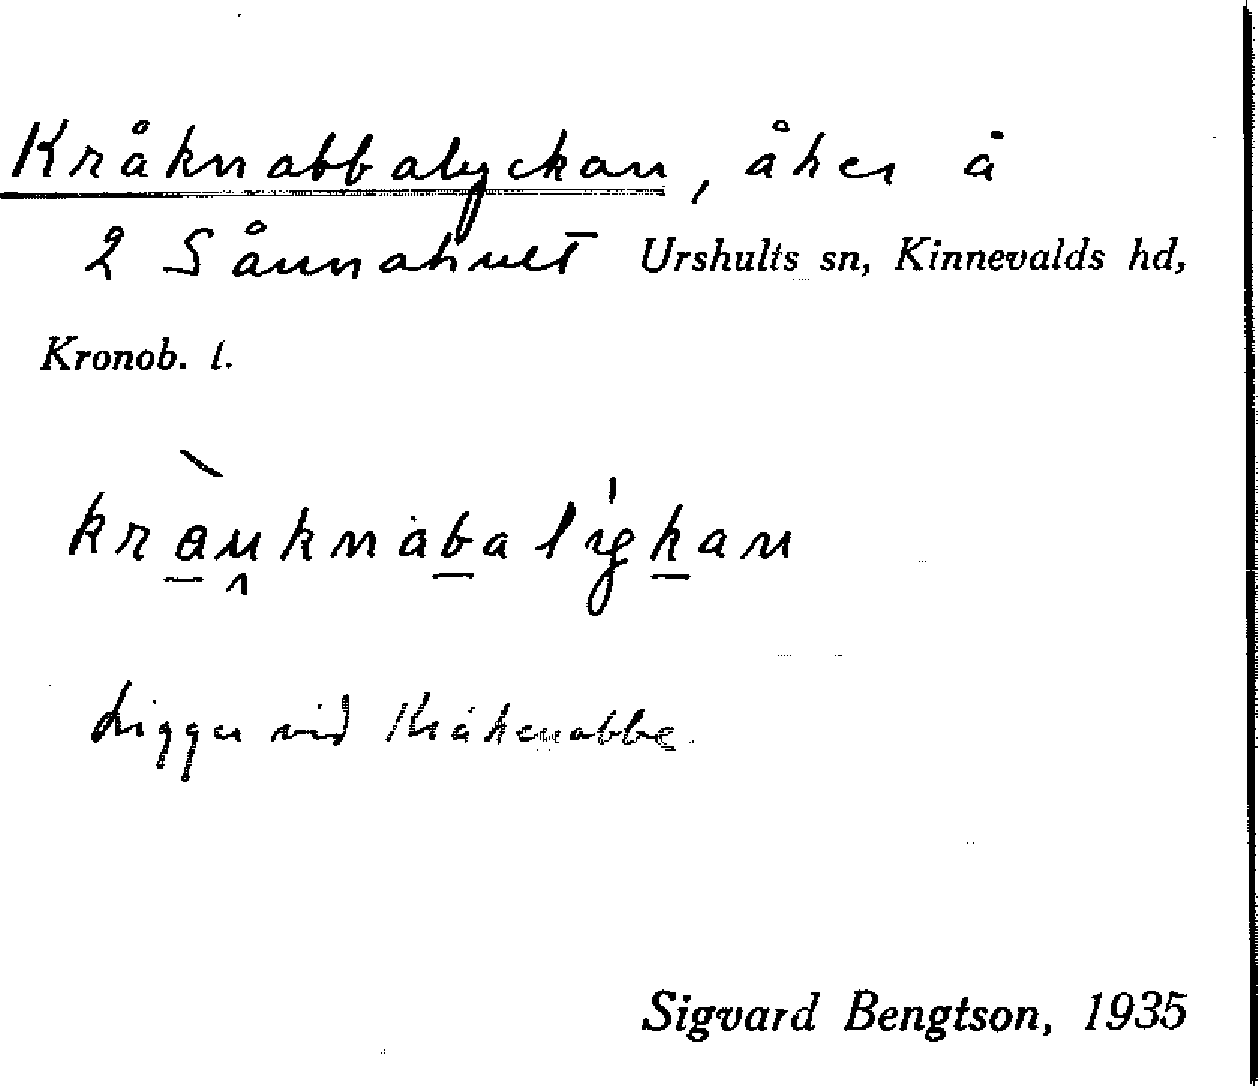 Kråknabbalyckan, åker å
2 Sånnahult Urshults sn, Kinnevalds hd,
Kronob. l.
kra̠u̯knab̠alyk̠an
Ligger vid Kråkenabbe.
Sigvard Bengtson, 1935